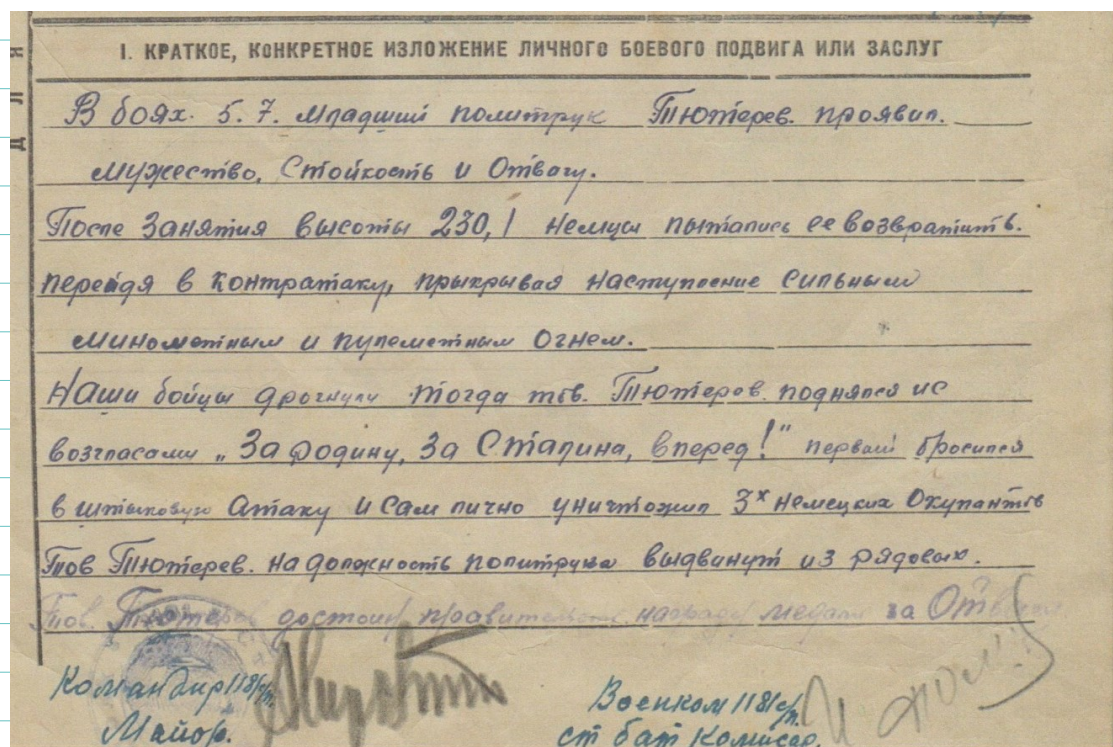 I. КРАТКОЕ, КОНКРЕТНОЕ ИЗЛОЖЕНИЕ ЛИЧНОГО БОЕВОГО ПОДВИГА ИЛИ ЗАСЛУГ
В боях. 5.7. младший политрук Тютерев. проявил.
мужество, Стойкость и Отвагу.
После Занятия высоты 230,1 немцы пытались ее возвратить.
перейдя в контратаку, прыкрывая наступление сильным
минометным и пулеметным Огнем.
Наши бойцы дрогнули тогда тов. Тютерев. поднялся и с
возгласами „За родину, За Сталина, вперед!" первый бросился
в штыковую Атаку и Сам лично уничтожил 3х немецких Окупантов
Тов Тютерев. на должность политрука выдвинут из рядовых.
Тов. Тютерев достоин награды медали за
Командир 1181 с/п.
Майор.
Военком 1181 с/п.
ст бат Комиссар.